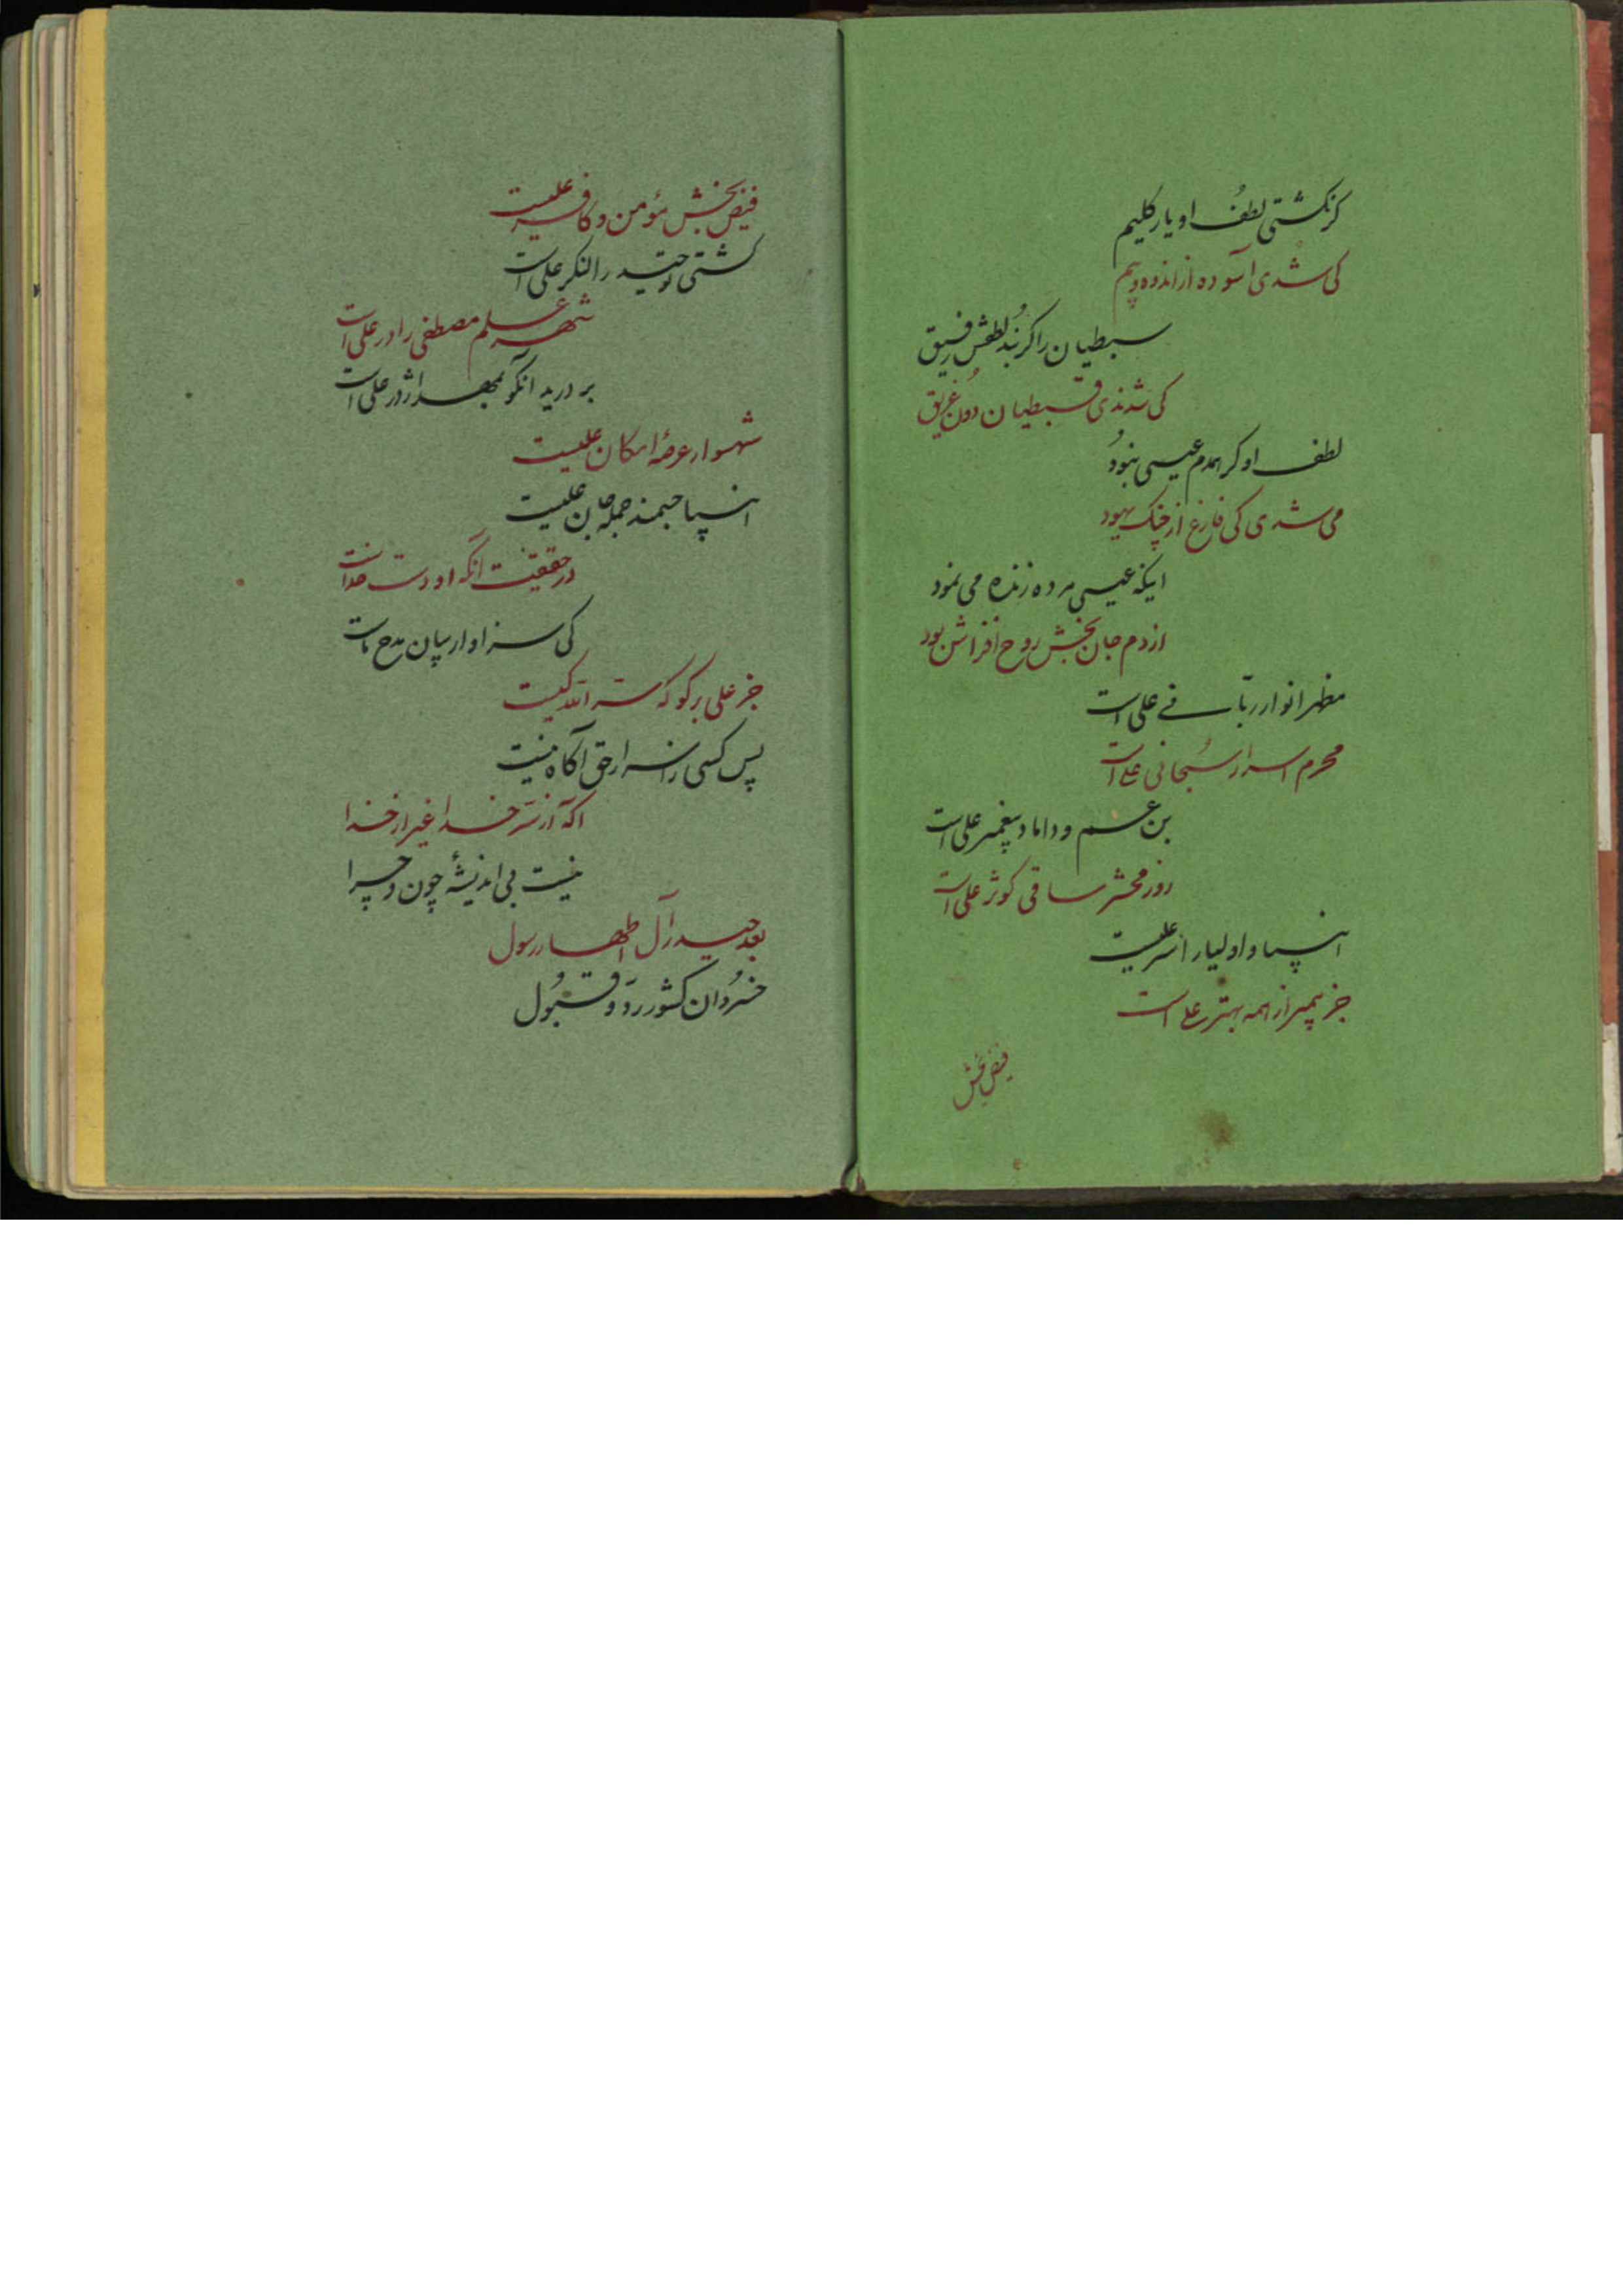 کرنکشتی لطف او یار کلیم
کی شدی آسوده از اندوه و بیم
سبطیان را کر نبد لطفش رفیق
کی شدندی قبطیان دون غریق
لطف او کر همدم عیسی نبود
می شدی کی فارغ از چنک یهود
اینکه عیسی مرده زنده می نمود
از دم جان بخش روح افزاش بود
مظهر انوار ربانی علی است
محرم اسرار سبحانی علی است
بن عم و داماد پیغمبر علی است
روز محشر ساقی کوثر علی است
انبیا و اولیا را سر علیست
جز پیمبر از همه بهتر علی است
فیض بخش
فیض بخش مؤمن و کافر علیست
کشتی توحید را لنکر علی است
شهر علم مصطفی را در علی است
بر درید آنکو بمهد اژدر علی است
شهسوار عرصهٔ امکان علیست
انبیا جسمند جمله جان علیست
در حقیقت آنکه او دست خداست
کی سزاوار بیان مدح ماست
جز علی بر کو که سر الله کیست
پس کسی ز اسرار حق آکاه نیست
آکه از سر خدا غیر از خدا
نیست بی اندیشهٔ چون و چرا
بعد حیدر آل اطهار رسول
خسروان کشور رد و قبول